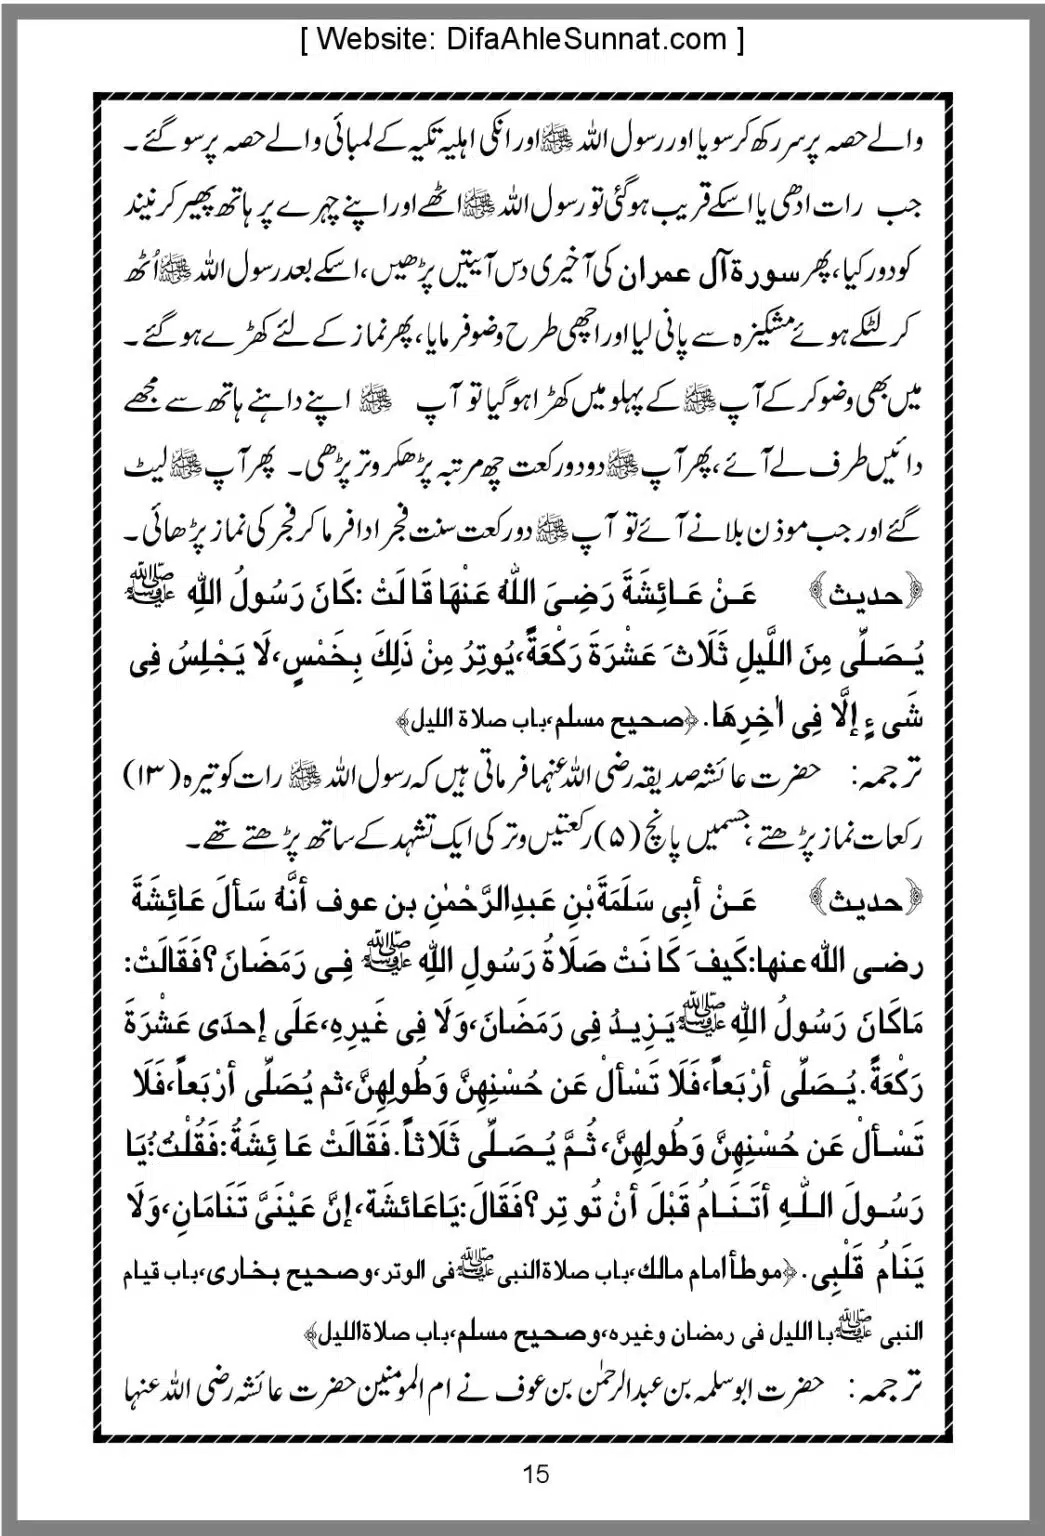 [ Website: DifaAhleSunnat.com ]
والے حصہ پر سر رکھ کر سویا اور رسول اللہ ﷺ اور انکی اہلیہ تکیہ کے لمبائی والے حصہ پر سو گئے۔
جب رات ادھی یا اسکے قریب ہو گئی تو رسول اللہ ﷺ اٹھے اور اپنے چہرے پر ہاتھ پھیر کر نیند
کو دور کیا، پھر سورة آل عمران کی آخیری دس آیتیں پڑھیں، اسکے بعد رسول اللہ ﷺ اُٹھ
کر لٹکے ہوئے مشکیزہ سے پانی لیا اور اچھی طرح وضو فرمایا، پھر نماز کے لئے کھڑے ہو گئے۔
میں بھی وضو کر کے آپ ﷺ کے پہلو میں کھڑا ہو گیا تو آپ ﷺ اپنے داہنے ہاتھ سے مجھے
دائیں طرف لے آئے، پھر آپ ﷺ دو دو رکعت چھ مرتبہ پڑھکر وتر پڑھی۔ پھر آپ ﷺ لیٹ
گئے اور جب موذن بلانے آئے تو آپ ﷺ دو رکعت سنت فجر ادا فرما کر فجر کی نماز پڑھائی۔
﴿حدیث﴾ عَنْ عَائِشَةَ رَضِیَ اللّٰهُ عَنْهَا قَالَتْ :کَانَ رَسُولُ اللهِ ﷺ
یُصَلِّی مِنَ اللَّیلِ ثَلَاثَ عَشْرَةَ رَکْعَةً،یُوتِرُ مِنْ ذَلِکَ بِخَمْسٍ،لَا یَجْلِسُ فِی
شَیءٍ إلَّا فِی اٰخِرِهَا. ﴿صحیح مسلم،باب صلاة اللیل﴾
ترجمہ: حضرت عائشہ صدیقہ رضی اللہ عنہما فرماتی ہیں کہ رسول اللہ ﷺ رات کو تیرہ (۱۳)
رکعات نماز پڑھتے، جسمیں پانچ (۵) رکعتیں وتر کی ایک تشہد کے ساتھ پڑھتے تھے۔
﴿حدیث﴾ عَنْ أبِی سَلَمَةَ بْنِ عَبدِالرَّحْمٰنِ بن عوف أنَّهُ سَألَ عَائِشَةَ
رضی اللّٰه عنها:کَیفَ کَانَتْ صَلَاةُ رَسُولِ اللهِ ﷺ فِی رَمَضَانَ؟فَقَالَتْ:
مَاکَانَ رَسُولُ اللهِ ﷺ یَزِیدُ فِی رَمَضَانَ،وَلَا فِی غَیرِهِ،عَلَی إحدَی عَشْرَةَ
رَکْعَةً.یُصَلِّی أرْبَعاً،فَلَا تَسْألْ عَن حُسْنِهِنَّ وَطُولِهِنَّ،ثم یُصَلِّی أرْبَعاً،فَلَا
تَسْألْ عَن حُسْنِهِنَّ وَطُولِهِنَّ،ثُمَّ یُصَلِّی ثَلَاثاً.فَقَالَتْ عَائِشَةُ:فَقُلْتُ:یَا
رَسُولَ اللهِ أتَنَامُ قَبْلَ أنْ تُوتِر؟فَقَالَ:یَاعَائشَة،إنَّ عَیْنَیَّ تَنَامَانِ،وَلَا
یَنَامُ قَلْبِی. ﴿موطأ امام مالك،باب صلاة النبی ﷺ فی الوتر،وصحیح بخاری،باب قیام
النبی ﷺ با اللیل فی رمضان وغیرہ،وصحیح مسلم،باب صلاة اللیل﴾
ترجمہ: حضرت ابوسلمہ بن عبدالرحمٰن بن عوف نے ام المومنین حضرت عائشہ رضی اللہ عنہا
15